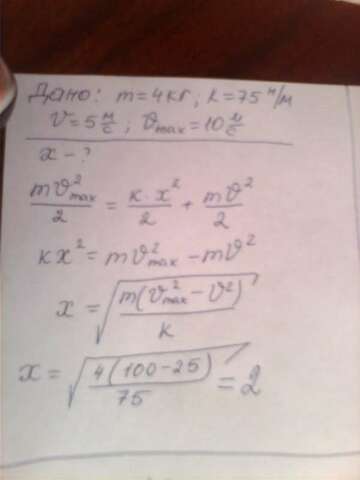 Дано: m=4кг; k=75 н/м
V=5 м/с; ϑmax=10 м/с
x-?
mϑ²max/2 = k·x²/2 + mϑ²/2
kx² = mϑ²max - mϑ²
x = √(m(ϑ²max - ϑ²)/k)
x = √(4(100-25)/75) = 2